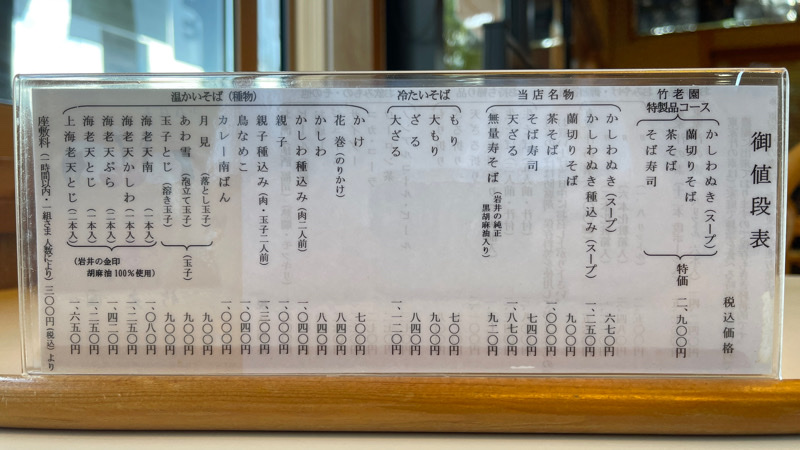 御値段表
税込価格
竹老園
特製品コース
かしわぬき(スープ)
蘭切りそば
茶そば
そば寿司
特価 二、九〇〇円
当店名物
かしわぬき(スープ) 六七〇円
かしわぬき種込み(スープ) 一、二五〇円
蘭切りそば 九〇〇円
茶そば 一、〇〇〇円
そば寿司 七四〇円
天ざる 一、八七〇円
無量寿そば(岩井の純正黒胡麻油入り) 九二〇円
冷たいそば
もり 七〇〇円
大もり 九〇〇円
ざる 八四〇円
大ざる 一、一二〇円
温かいそば(種物)
かけ 七〇〇円
花巻(のりかけ) 八四〇円
かしわ 八四〇円
かしわ種込み(肉二人前) 一、〇四〇円
親子 一、〇〇〇円
親子種込み(肉・玉子二人前) 一、三〇〇円
鳥なめこ 一、〇四〇円
カレー南ばん 一、〇〇〇円
月見(落とし玉子) 九〇〇円
あわ雪(泡立て玉子) 九〇〇円
玉子とじ(溶き玉子) 九〇〇円
(玉子)
海老天南(一本入) 一、〇八〇円
海老天かしわ(一本入) 一、二五〇円
海老天ぷら(二本入) 一、四二〇円
海老天とじ(一本入) 一、二五〇円
上海老天とじ(二本入) 一、六五〇円
(岩井の金印
胡麻油100%使用)
座敷料(一時間以内・一組さま 人数により)三〇〇円(税込)より